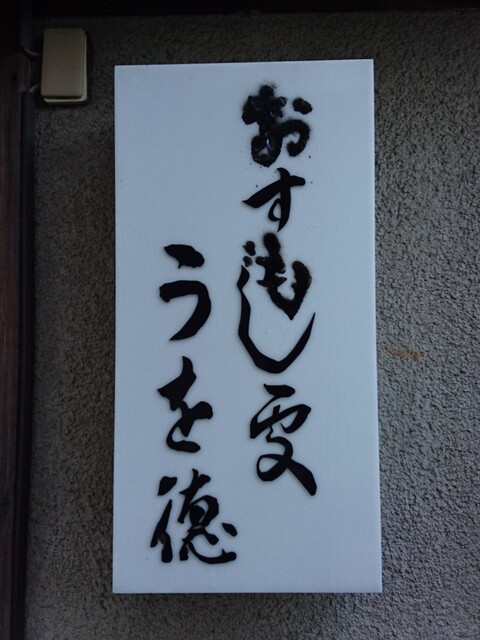 おすもじ處
うを徳